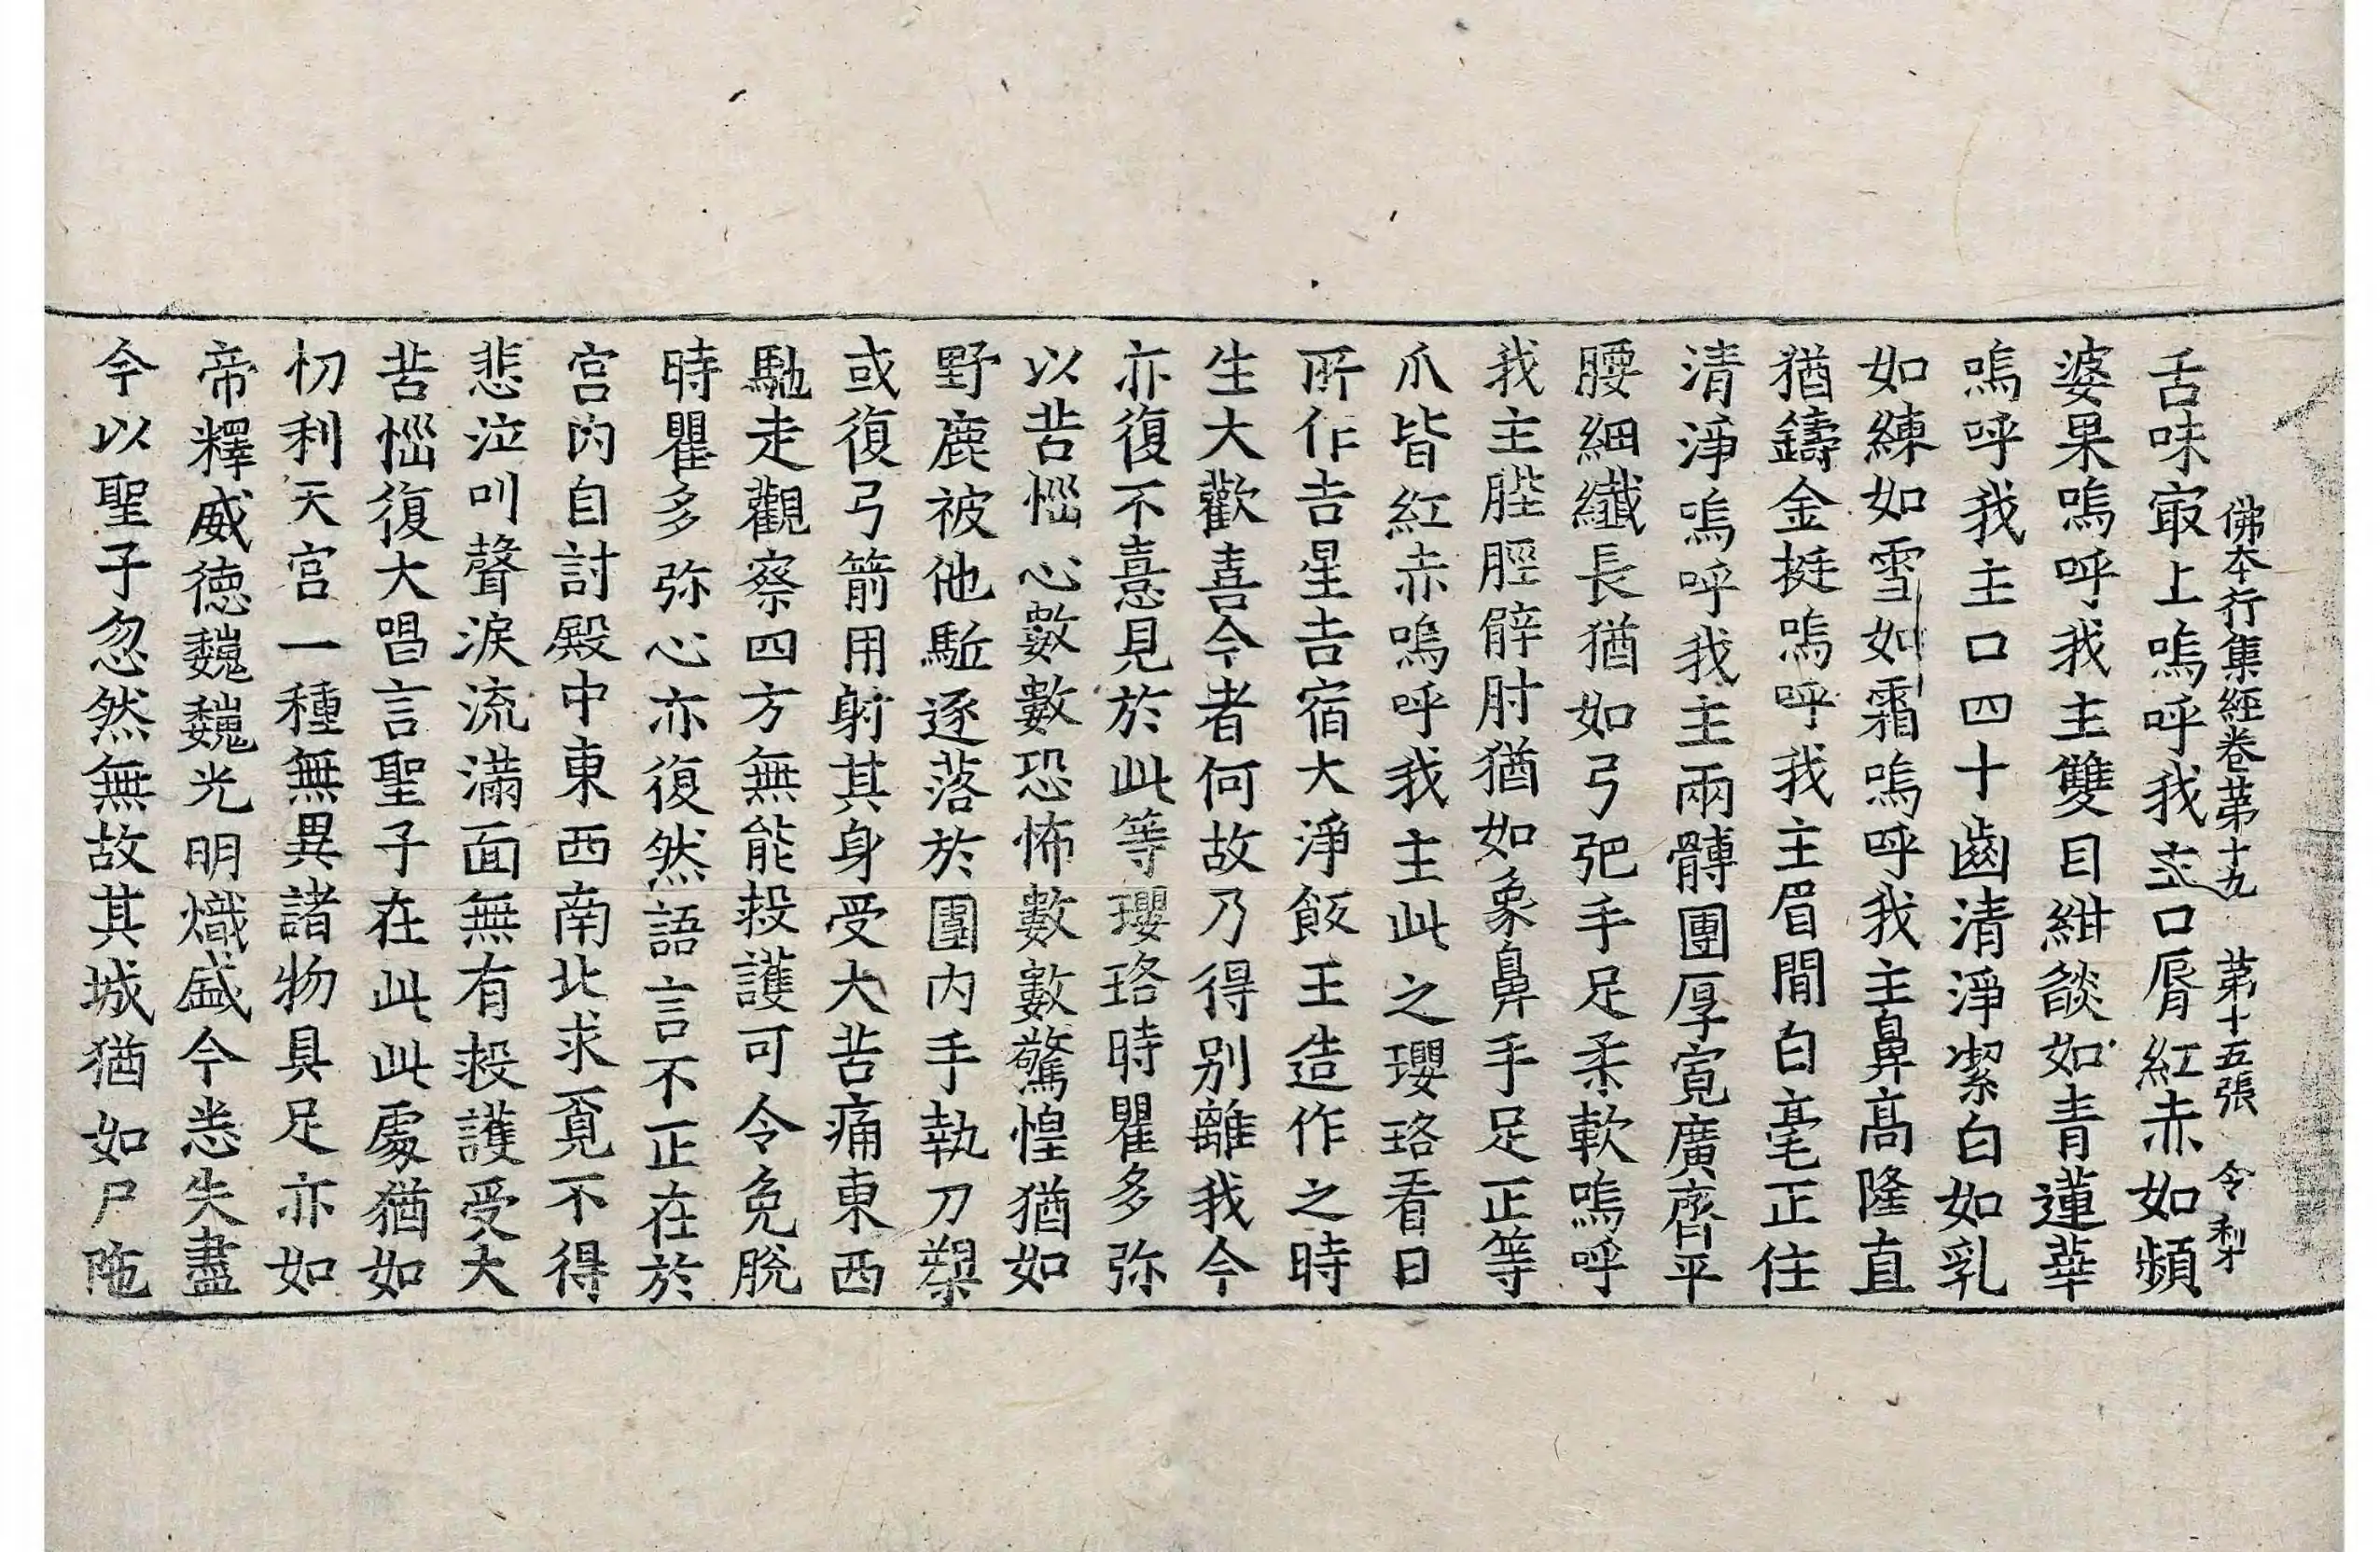 佛本行集經卷苐十九　苐十五張　令　梨
舌味㝡上嗚呼我主口脣紅赤如頻
婆果嗚呼我主雙目紺燄如青蓮華
嗚呼我主口四十齒清淨潔白如乳
如練如雪如霜嗚呼我主鼻高隆直
猶鑄金挺嗚呼我主眉間白毫正住
清淨嗚呼我主兩髆團厚寬廣齊平
腰細纖長猶如弓弝手足柔軟嗚呼
我主䏶脛臂肘猶如象鼻手足正等
爪皆紅赤嗚呼我主此之瓔珞看日
所作吉星吉宿大淨飯王造作之時
生大歡喜今者何故乃得別離我今
亦復不憙見於此等瓔珞時瞿多弥
以苦惱心數數恐怖數數驚惶猶如
野鹿被他駈逐落於圍内手執刀槊
或復弓箭用射其身受大苦痛東西
馳走觀察四方無能救護可令免脫
時瞿多弥心亦復然語言不正在於
宮内自討殿中東西南北求覓不得
悲泣叫聲淚流滿面無有救護受大
苦惱復大唱言聖子在此此處猶如
忉利天宮一種無異諸物具足亦如
帝釋威德巍巍光明熾盛今悉失盡
今以聖子忽然無故其城猶如尸陁